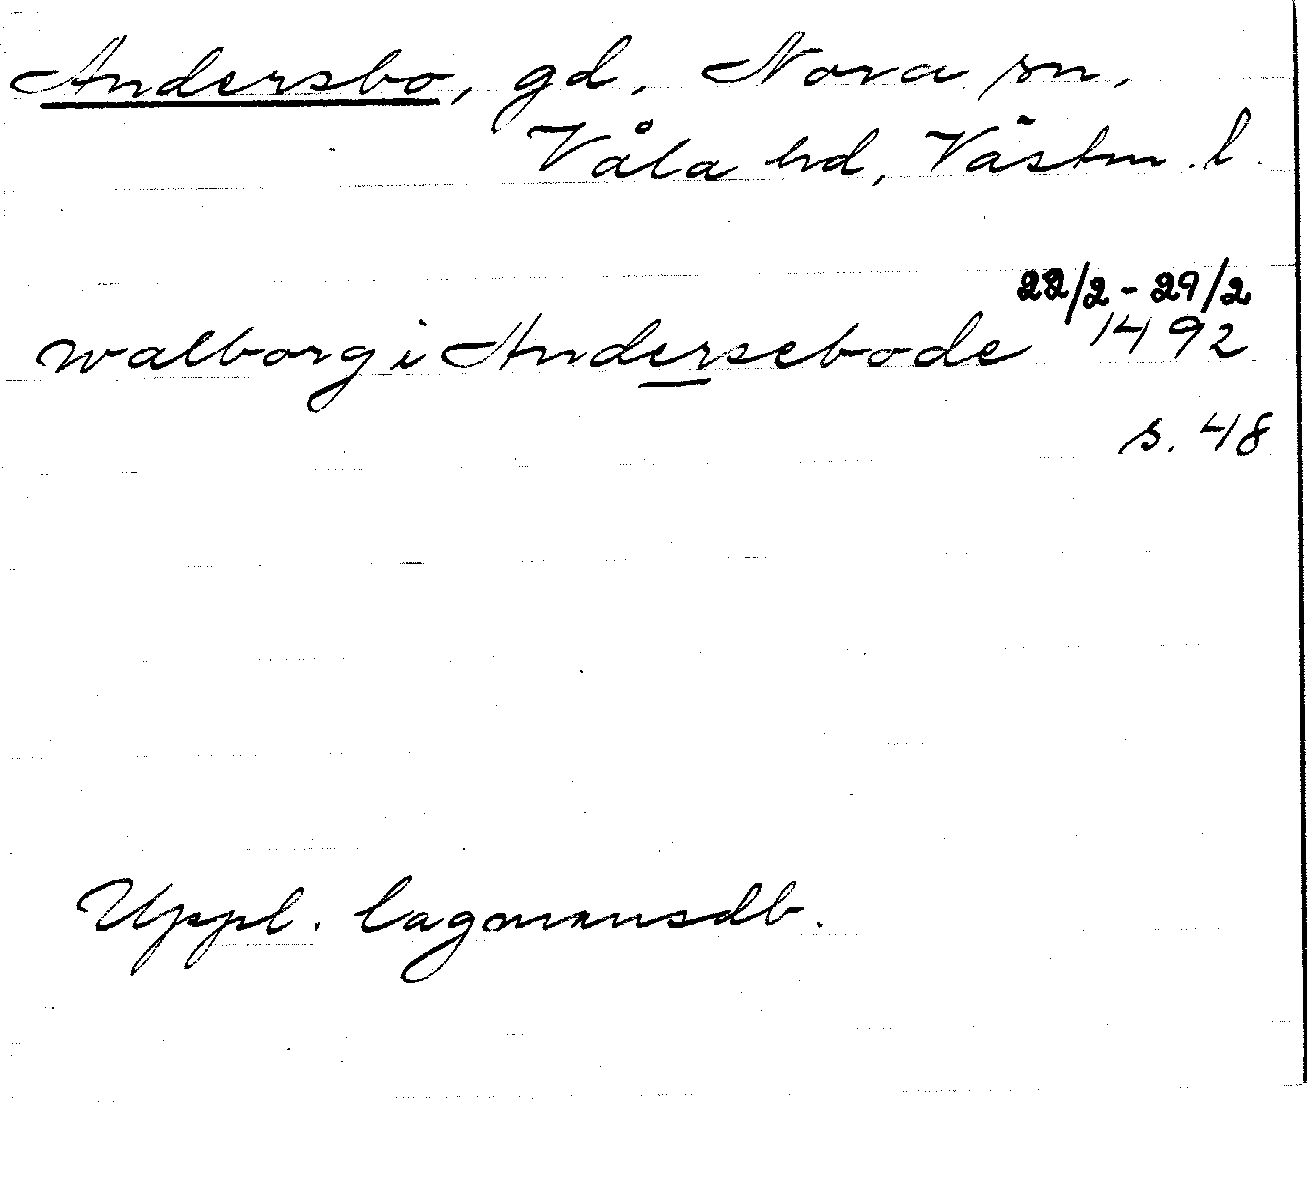 Andersbo, gd, Nora sn,
Våla hd, Västm. l.
22/2 - 29/2
walborg i Andersebode 1492
s. 48
Uppl. lagmansdb.